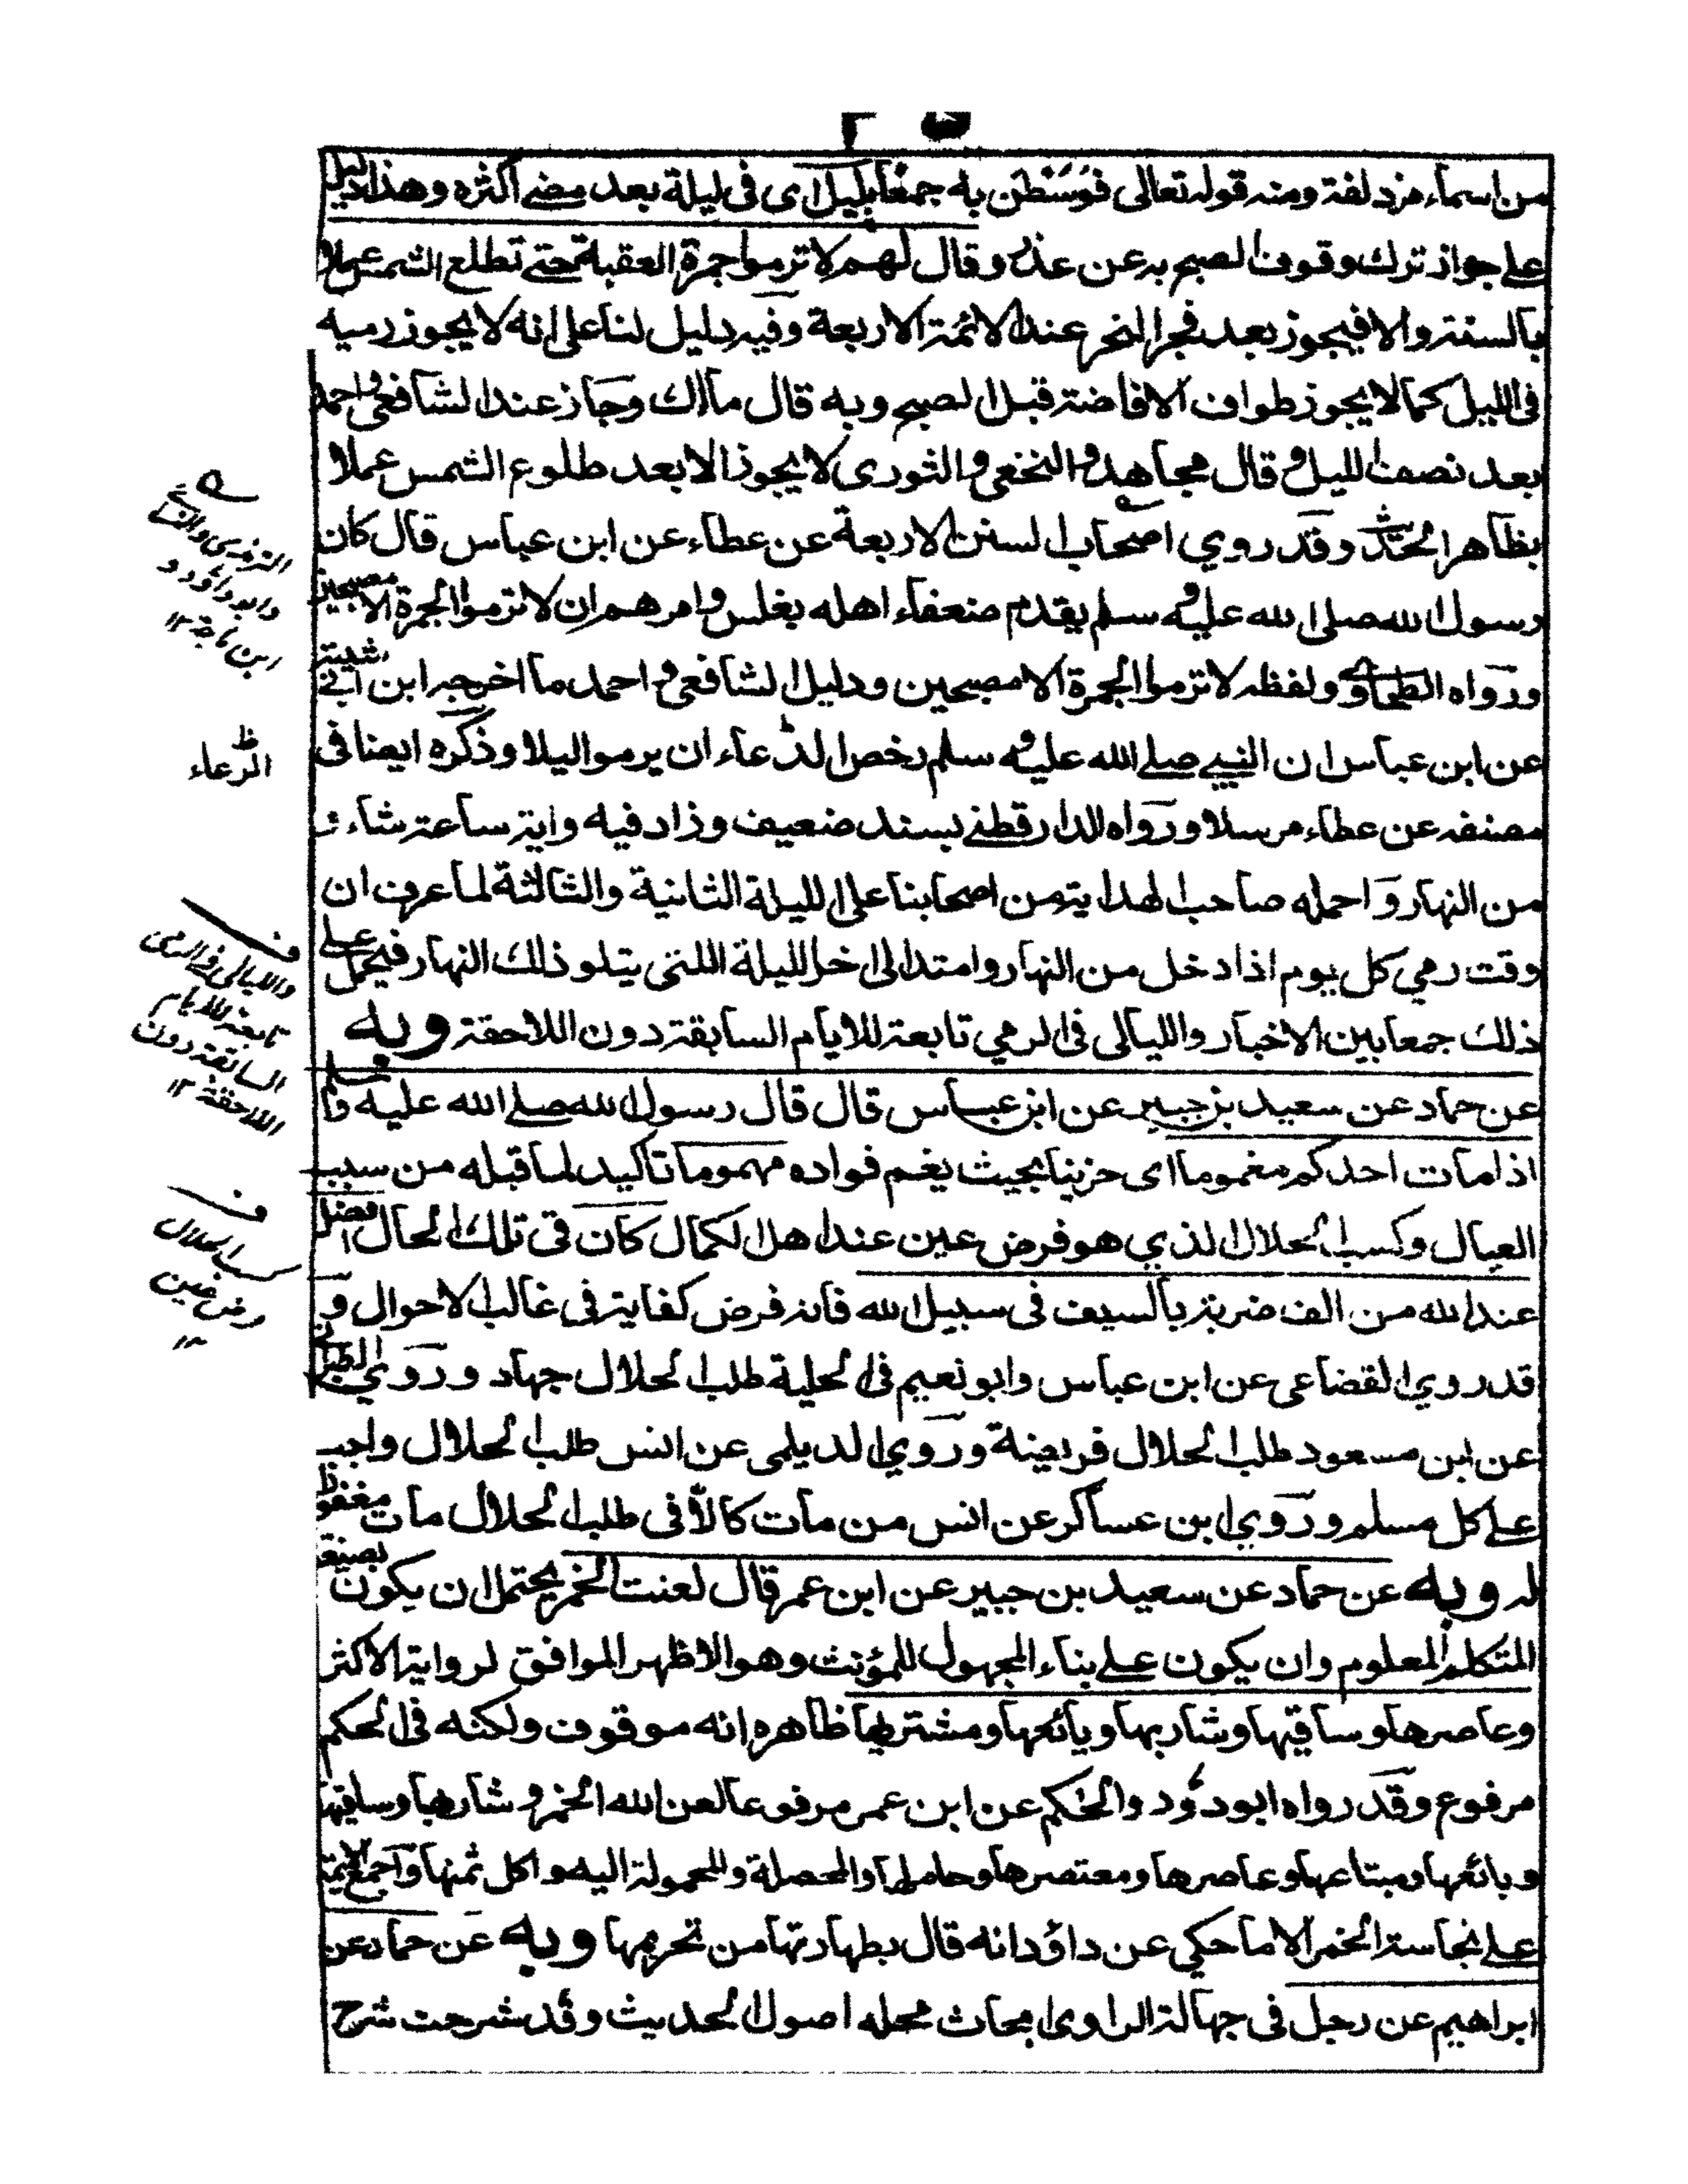 من اسماء مزدلفة ومنه قوله تعالى فوَسَطْن به جمعًا بليل اى فى ليلة بعد مضے اكثره وهذا دليل
علے جواز ترك وقوف الصبح به عن عذر وقال لهم لا ترموا جمرة العقبة حتے تطلع الشمس عملا
بالسنة والا فيجوز بعد فجر النحر عند الائمة الاربعة وفيه دليل لنا على انه لا يجوز رميه
فى الليل كما لا يجوز طواف الافاضة قبل الصبح وبه قال مالك وجاز عند الشافعى واحمد
بعد نصف الليل وقال مجاهد والنخعى والثورى لا يجوز الا بعد طلوع الشمس عملا
بظاهر الحديث وقد روي اصحاب السنن الاربعة عن عطاء عن ابن عباس قال كان
رسول الله صلى الله عليه وسلم يقدم ضعفاء اهله بغلس وامرهم ان لا ترموا الجمرة الا مصبحين
ورواه الطحاوے ولفظه لا ترموا الجمرة الا مصبحين ودليل الشافعى واحمد ما اخرجه ابن ابے شيبة
عن ابن عباس ان النبے صلے الله عليه وسلم رخص الرعاء ان يرموا ليلا وذكره ايضا فى
مصنفه عن عطاء مرسلا ورواه الدارقطنے بسند ضعيف وزاد فيه واية ساعة شاء
من النهار واحمله صاحب الهداية من اصحابنا على الليلة الثانية والثالثة لما عرف ان
وقت رمي كل يوم اذا دخل من النهار وامتد الى اخر الليلة اللتى يتلو ذلك النهار فيحمل علے
ذلك جمعا بين الاخبار والليالى فى الرمي تابعة للايام السابقة دون اللاحقة وبه
عن حماد عن سعيد بن جبير عن ابن عباس قال قال رسول الله صلے الله عليه وآله وسلم
اذا مات احدكم مغموما اى حزينا بحيث يغم فواده مهموما تاكيد لما قبله من سبب
العيال وكسب الحلال الذي هو فرض عين عند اهل الكمال كان فى تلك الحال افضل
عند الله من الف ضربة بالسيف فى سبيل الله فانه فرض كفاية فى غالب الاحوال و
قد روي القضاعى عن ابن عباس وابو نعيم فى الحلية طلب الحلال جهاد وروي الطبرانے
عن ابن مسعود طلب الحلال فريضة وروي الديلمى عن انس طلب الحلال واجب
علے كل مسلم وروي ابن عساكر عن انس من مات كالّا فى طلب الحلال مات مغفورا
له وبه عن حماد عن سعيد بن جبير عن ابن عمر قال لعنت الخمر يحتمل ان يكون بصيغة
المتكلم المعلوم وان يكون علے بناء المجهول للمؤنث وهو الاظهر الموافق لرواية الاكثر
وعاصرها وساقيها وشاربها وبائعها ومشتريها ظاهره انه موقوف ولكنه فى الحكم
مرفوع وقد رواه ابو دؤد والحاكم عن ابن عمر مرفوعا لعن الله الخمر وشاربها وساقيها
وبائعها ومبتاعها وعاصرها ومعتصرها وحاملها والمحصلة والمحمولة اليه واكل ثمنها واجمع الائمة
علے نجاسة الخمر الا ما حكي عن داؤد انه قال بطهارتها من تحريمها وبه عن حماد عن
ابراهيم عن رجل فى جهالة الراوى ابحاث محله اصول الحديث وقد شرحت شرح
الترمذى والنسائے
وابو داؤد و
ابن ماجة ١٢
الرعاء ظ
ف
والليالى فے الرمى
تابعة للايام
السابقة دون
اللاحقة ١٢
ف
كسب الحلال
فرض عين
١٢